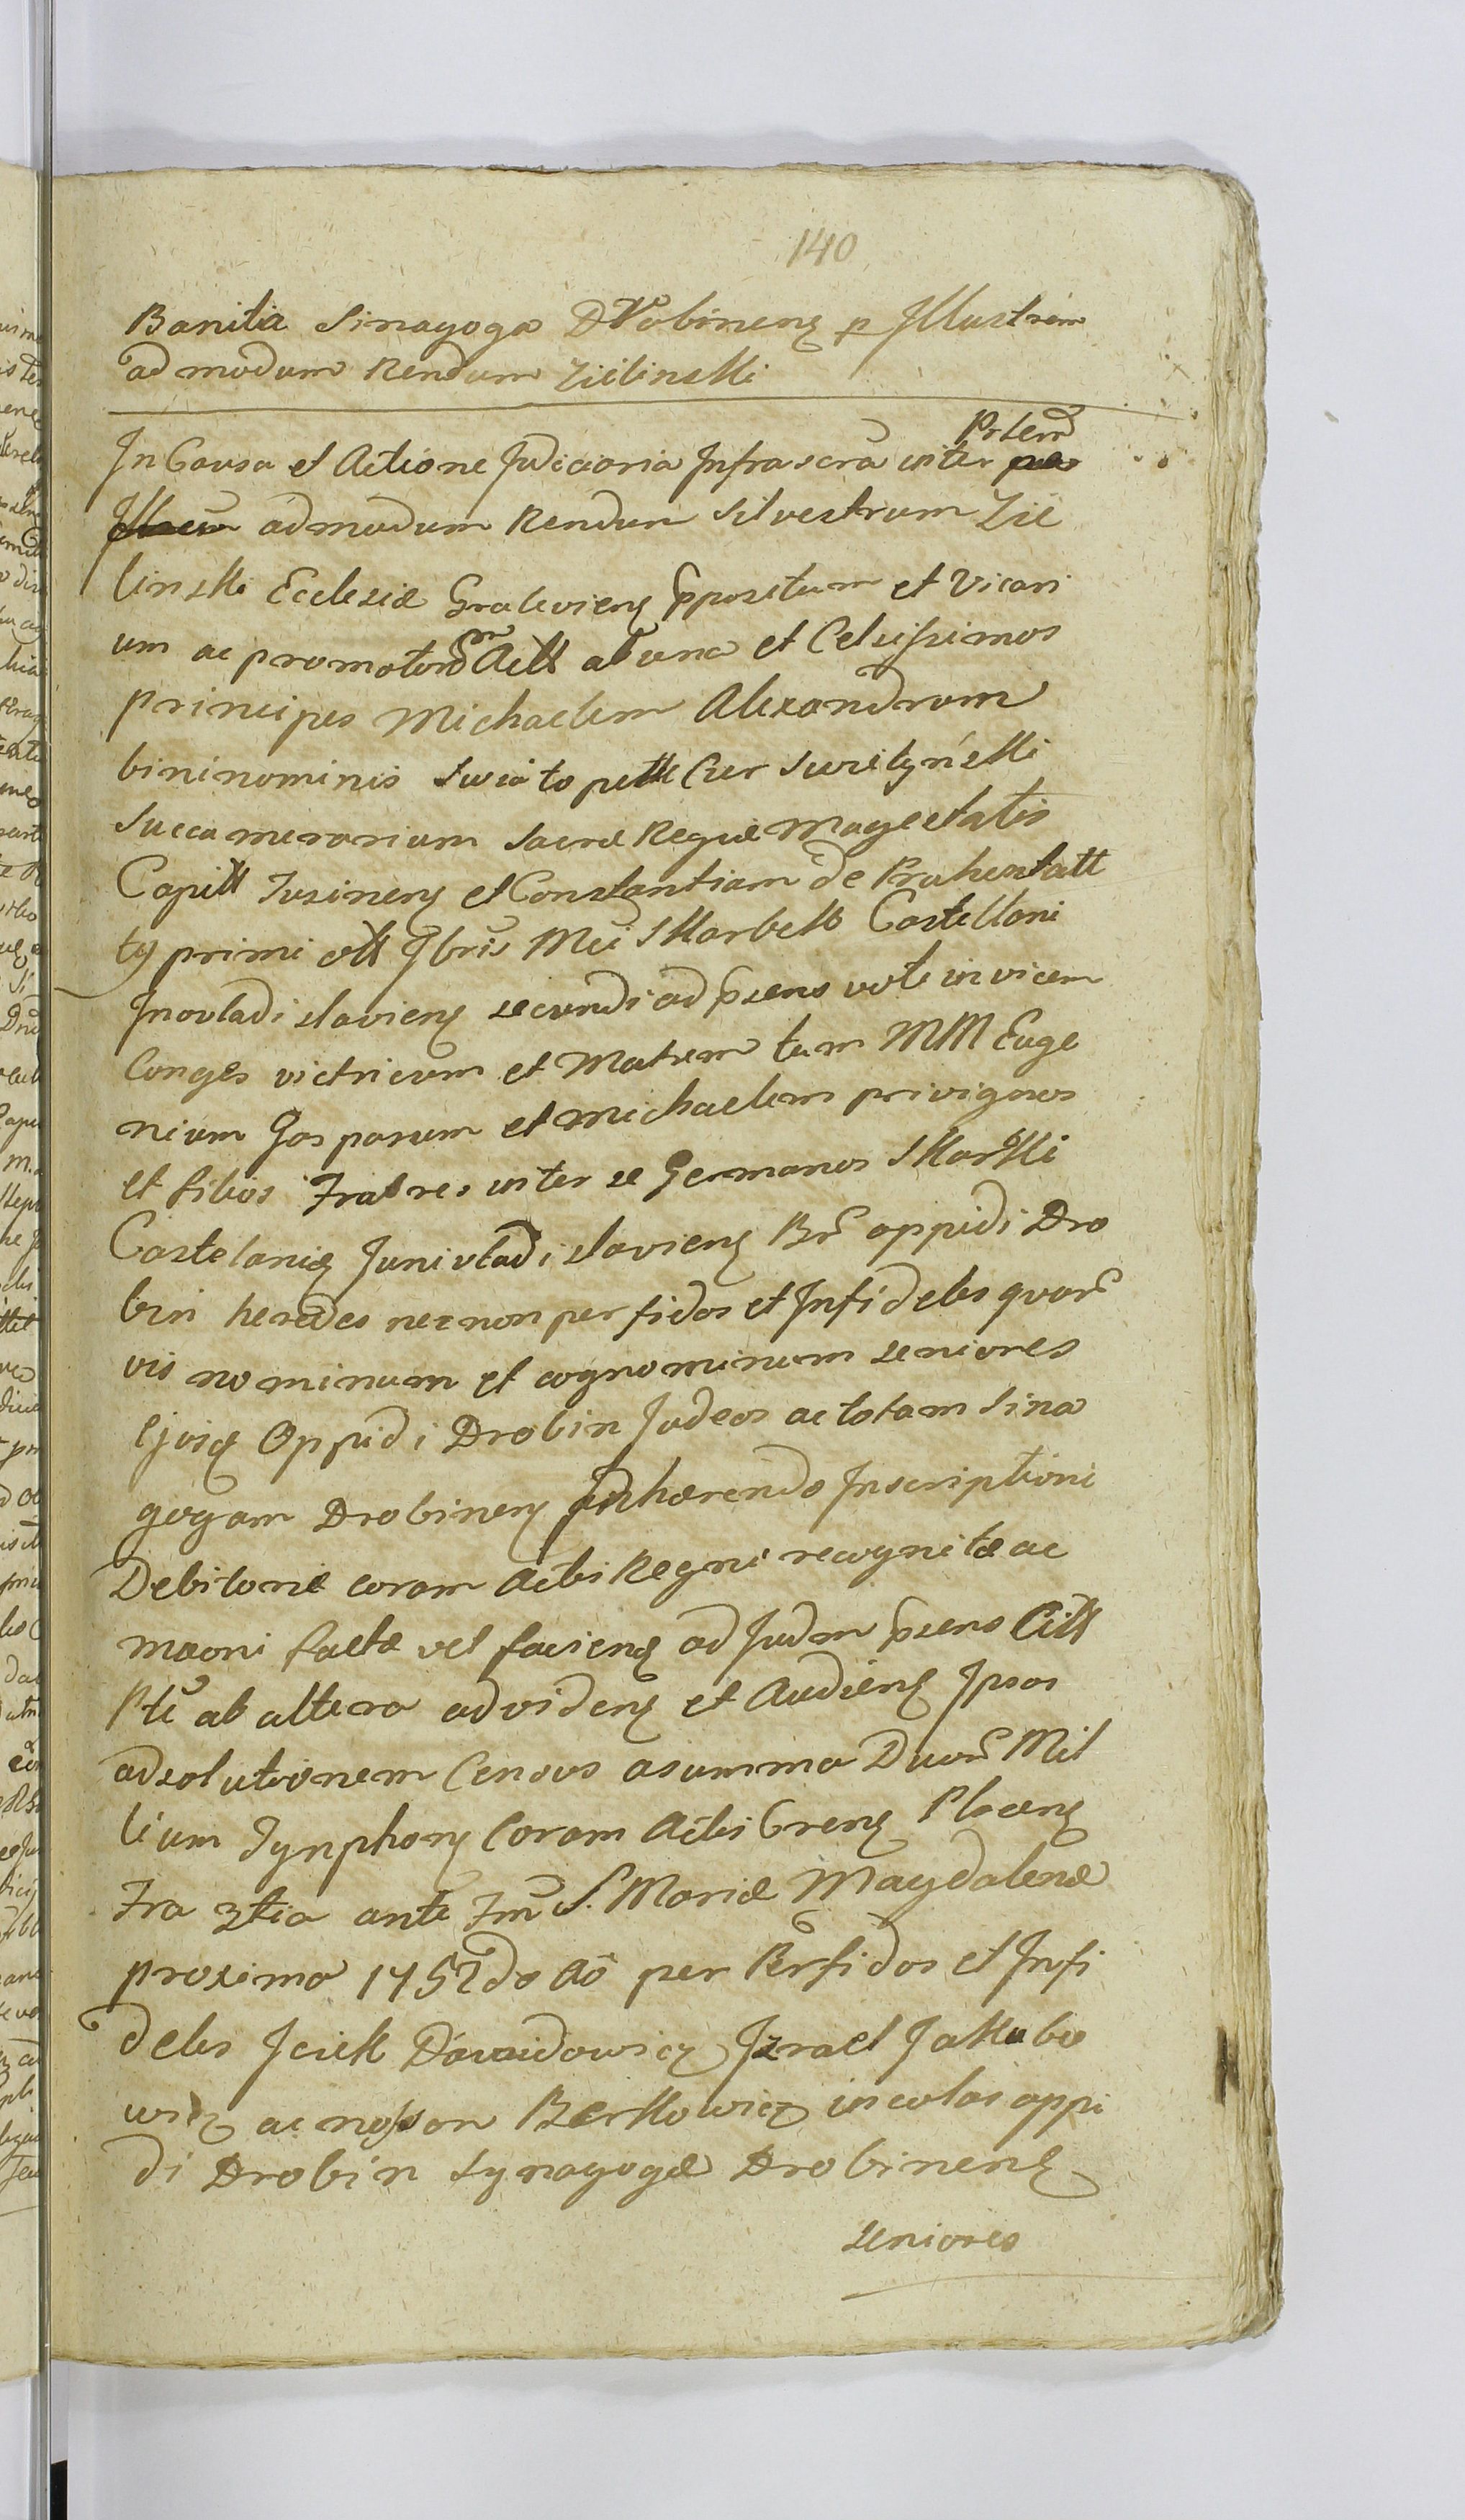 140
Banitia Sinagoga Drobinens p Illustrem
admodum Rendum Zielinski
In Causa et Actione Judiciaria Infrascra inter
Prtem
admodum Rendum Silvestrum Zie
linski Ecclesiæ Graleviens Ppositum et Vicari
um ac promotorem Actt ab una et Celsissimos
Principes Michaelem Alexandrum
bininominis Swiatopelk Czer Swietynski
Succamerarium Sacræ Regiæ Magestatis
Capitt Jusinens et Constantiam de
ty primi Skarbek Castellani
Inovladislaviens secundi ad psens voti invicem
Conges victricum et Matrem tum MM Euge
nium Gasparum et Michaelem privignos
et filios Fratres inter se Germanos Skarbki
Castelanis Junivladislaviens Br oppidi Dro
bin heredes necnon perfidos et Infideles quor
vis nominum et cognominum seniores
Ejusq Oppidi Drobin Judeos ac totam Sina
gogam Drobinens Inhærendo Inscriptioni
Debitoriæ coram Actis Regni recognitæ ac
maoni factæ vel faciens ad Judm psens Citt
Pte ab altera ad videns et Audiens Ipsos
ad solutionem Census a summa Duor Mil
lium Tynphons Coram Actis Crens Plocens
Fra 3tia ante Fm S. Mariæ Magdalenæ
proximo 1752do Ao per Perfidos et Infi
deles Jcick Dawidowicz Jzrael Jakubo
wicz ac nosson Berkowicz incolas oppi
di Drobin Synagogæ Drobinens
seniores